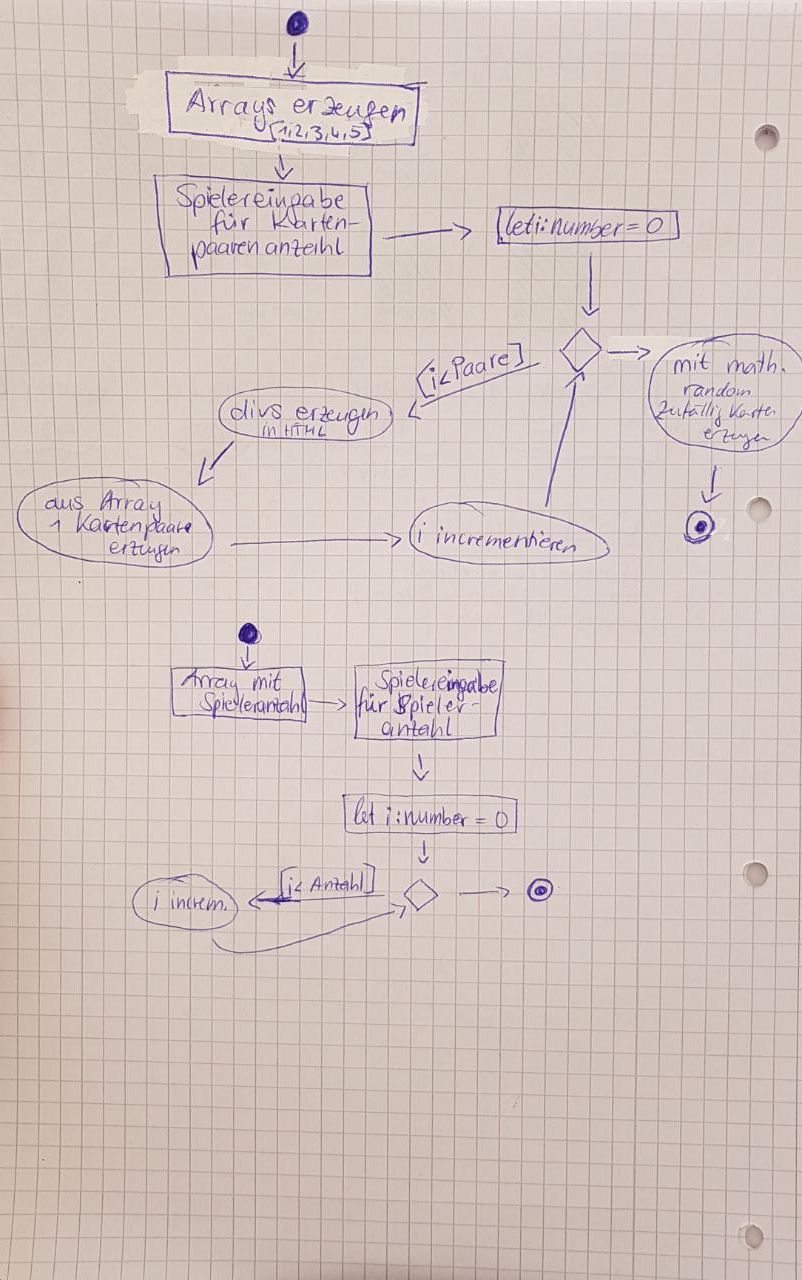 Arrays erzeugen
[1,2,3,4,5]
Spielereingabe
für Karten-
paarenanzahl
let i:number = 0
[i<Paare]
mit math.
random
zufällig Karten
erzeugen
divs erzeugen
in HTML
aus Array
1 Kartenpaare
erzeugen
i incrementieren
Array mit
Spieleranzahl
Spielereingabe
für Spieler-
anzahl
let i:number = 0
[i< Anzahl]
i increm.